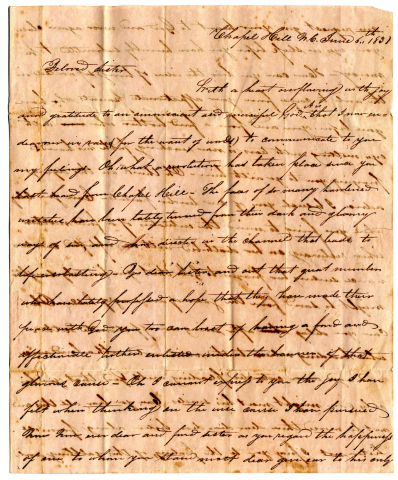 Chapel Hill N.C. June 6th 1831
Beloved Sister
With a heart overflowing with joy
and gratitude to an omnipotent and merciful God, that I now en
deavour in vain (for the want of words) to communicate to you
my feelings. Oh, what a revolution had taken place since you
last heard from Chapel Hill. The feet of so many hardened
wretches have been lately turned from their dark and gloomy
ways of sin and now directed in the channel that leads to
life everlasting. Yes dear sister and out that great number
who have lately professed a hope that they have made their
peace with God you too can boast of having a fond and
affectionate brother enlisted under the banner of that
glorious cause. Oh I cannot express to you the joy I have
felt when thinking on the wise course I have pursued
Now dear and fond sister as you regard the happiness
of one to whom you stand most dear give ear to his only